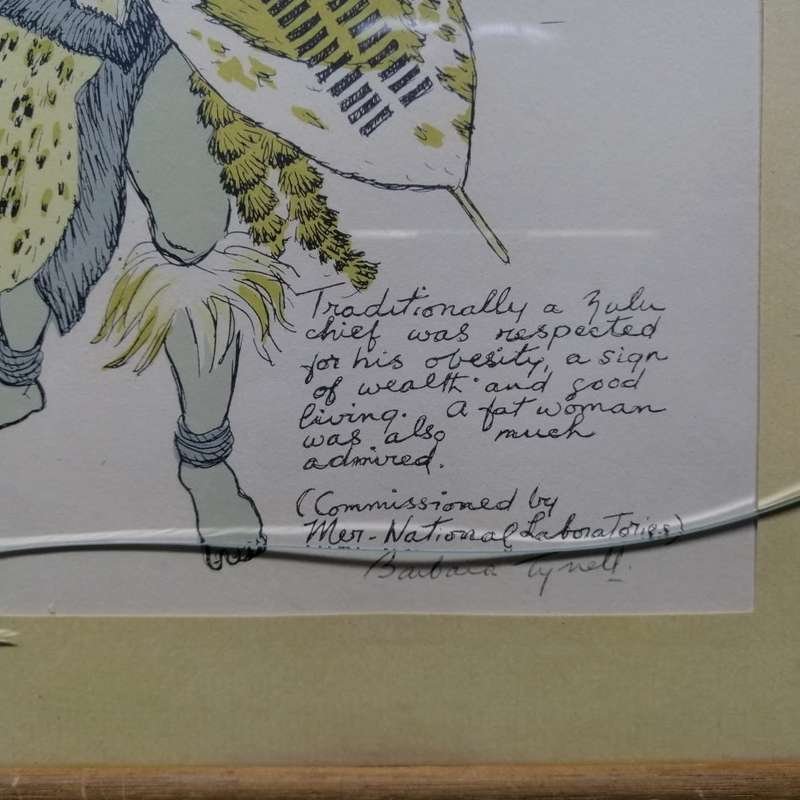 Traditionally a Zulu
chief was respected
for his obesity, a sign
of wealth and good
living. A fat woman
was also much
admired.
(Commissioned by
Mer-National Laboratories)
Barbara Tyrrell.